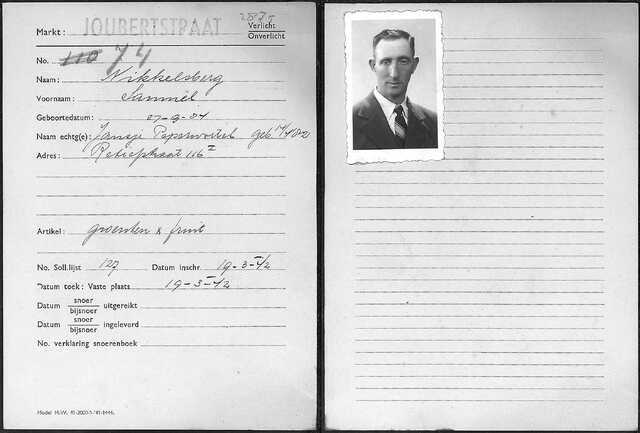 Markt: JOUBERTSTRAAT
Verlicht
Onverlicht
No. 110 74
Naam: Nikkelsberg
Voornaam: Samuel
Geboortedatum: 27-9-04
Naam echtg(e): Jansje geb
Adres: Retiefstraat 116 I
Artikel: groenten & fruit
No. Soll.lijst 127 Datum inschr. 19-3-42
Datum toek: Vaste plaats 19-3-42
Datum snoer bijsnoer uitgereikt
Datum snoer bijsnoer ingeleverd
No. verklaring snoerenboek
Model M.W.